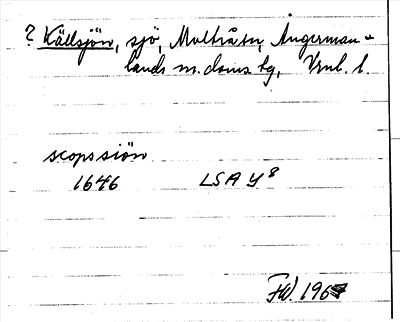 ? Källsjön, sjö, Multrå sn, Ångerman-
lands m. doms. hg, Vrnl. l.
scops siön
1646 LSA Y8
FW. 1967